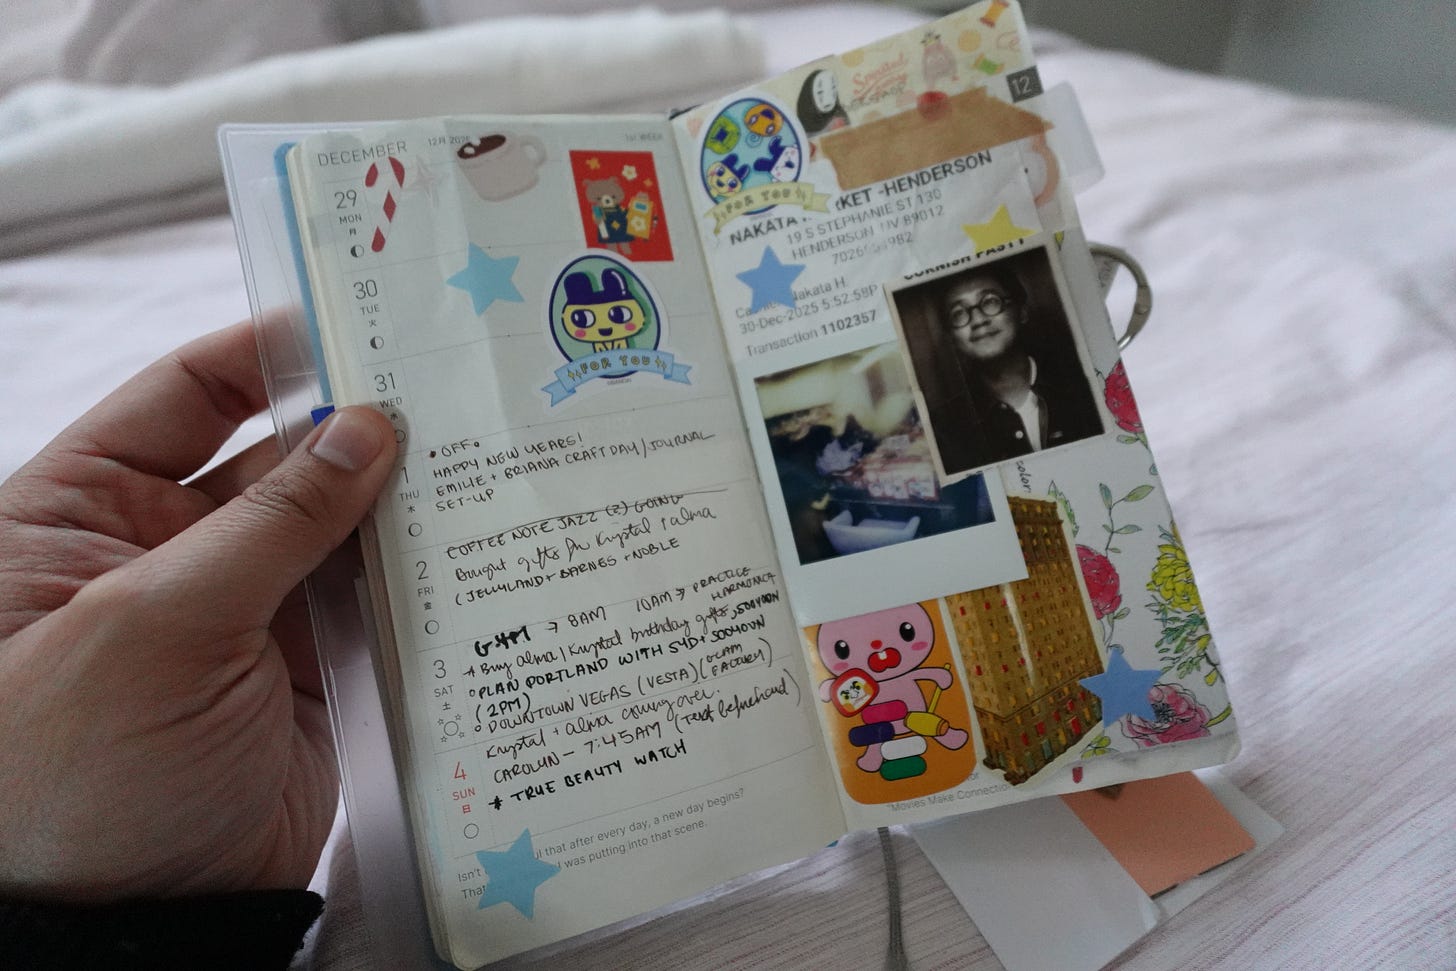 DECEMBER 12月 2025 1st WEEK
29
MON
月
30
TUE
火
31
WED
水
• OFF •
HAPPY NEW YEARS!
EMILIE + BRIANA CRAFT DAY / JOURNAL
SET-UP
1
THU
木
COFFEE NOTE JAZZ (2) GOING
Bought gifts for Krystal + alma
(JELLYLAND + BARNES + NOBLE
2
FRI
金
GYM → 8AM 10AM → PRACTICE
HARMONICA
Buy alma / Krystal birthday gifts, SOOYOON
PLAN PORTLAND WITH SYD + SOOYOON
(2PM)
DOWNTOWN VEGAS (VESTA) (GLAM
FACTORY)
3
SAT
土
Krystal + alma coming over.
CAROLYN – 7:45AM (Text beforehand)
* TRUE BEAUTY WATCH
4
SUN
日
Isn't ul that after every day, a new day begins?
That I was putting into that scene.
FOR YOU
12
Special
FOR YOU
NAKATA RKET -HENDERSON
19 S STEPHANIE ST 130
HENDERSON NV 89012
Nakata H.
30-Dec-2025 5:52:58P
Transaction 1102357
CORNISH PASTY
color
"Movies Make Connection